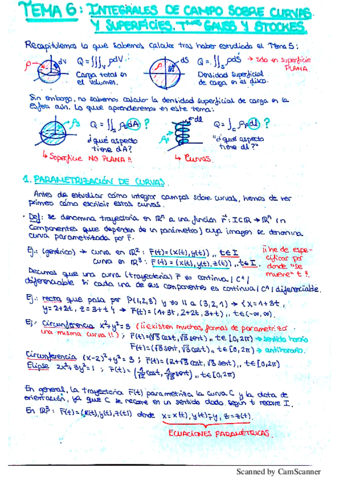 TEMA 6: INTEGRALES DE CAMPO SOBRE CURVAS
Y SUPERFICIES. Tmas GAUSS Y STOCKES.
Recapitulemos lo que sabemos calcular tras haber estudiado el Tema 5:
Q = ∭ ρ dV
Carga total en el volumen.
Q = ∬ ρ dS → sólo en superficie PLANA
Densidad superficial de carga en el disco.
Sin embargo, no sabemos calcular la densidad superficial de carga en la
esfera aún. Lo que aprenderemos en este tema:
¿qué aspecto tiene dA?
↳ Superficie NO PLANA!!
¿qué aspecto tiene dl?
↳ Curvas
1. PARAMETRIZACIÓN DE CURVAS.
Antes de estudiar cómo integrar campos sobre curvas, hemos de ver
primero cómo escribir estas curvas.
• Def: se denomina trayectoria en ℝⁿ a una función r: I⊂ℝ → ℝⁿ (n
componentes que dependen de un parámetro) cuya imagen se denomina
curva parametrizada por r.
Ej: (genérico) → curva en ℝ²: r(t)=(x(t),y(t)), t∈I
curva en ℝ³: r(t)=(x(t),y(t),z(t)), t∈I
¡¡he de especificar por donde "se mueve" t!!
Decimos que una curva (trayectoria) r es continua / C¹ /
diferenciable si cada una de sus componentes es continua / C¹ / diferenciable.
Ej: recta que pasa por P(1,2,3) y es ∥ a (3,2,1) → {x=1+3t,
y=2+2t, z=3+t → r(t)=(1+3t, 2+2t, 3+t), t∈(-∞,∞).
Ej: Circunferencia x²+y²=3 (¡¡existen muchas formas de parametrizar
una misma curva!!) r(t)=(√3 sent, √3 cost), t∈[0,2π) → sentido horario
r(t)=(√3 cost, √3 sent), t∈[0,2π) → antihorario.
Circunferencia (x-2)²+y²=3; r(t)=(2+√3 cost, √3 sent), t∈[0,2π)
En general, la trayectoria r(t) parametriza la curva C y la dota de
orientación, ya que C se recorre en un sentido dado según t recorre I.
En ℝ³: r(t)=(x(t),y(t),z(t)) donde x=x(t), y(t)=y, z=z(t).
ECUACIONES PARAMÉTRICAS.
Scanned by CamScanner